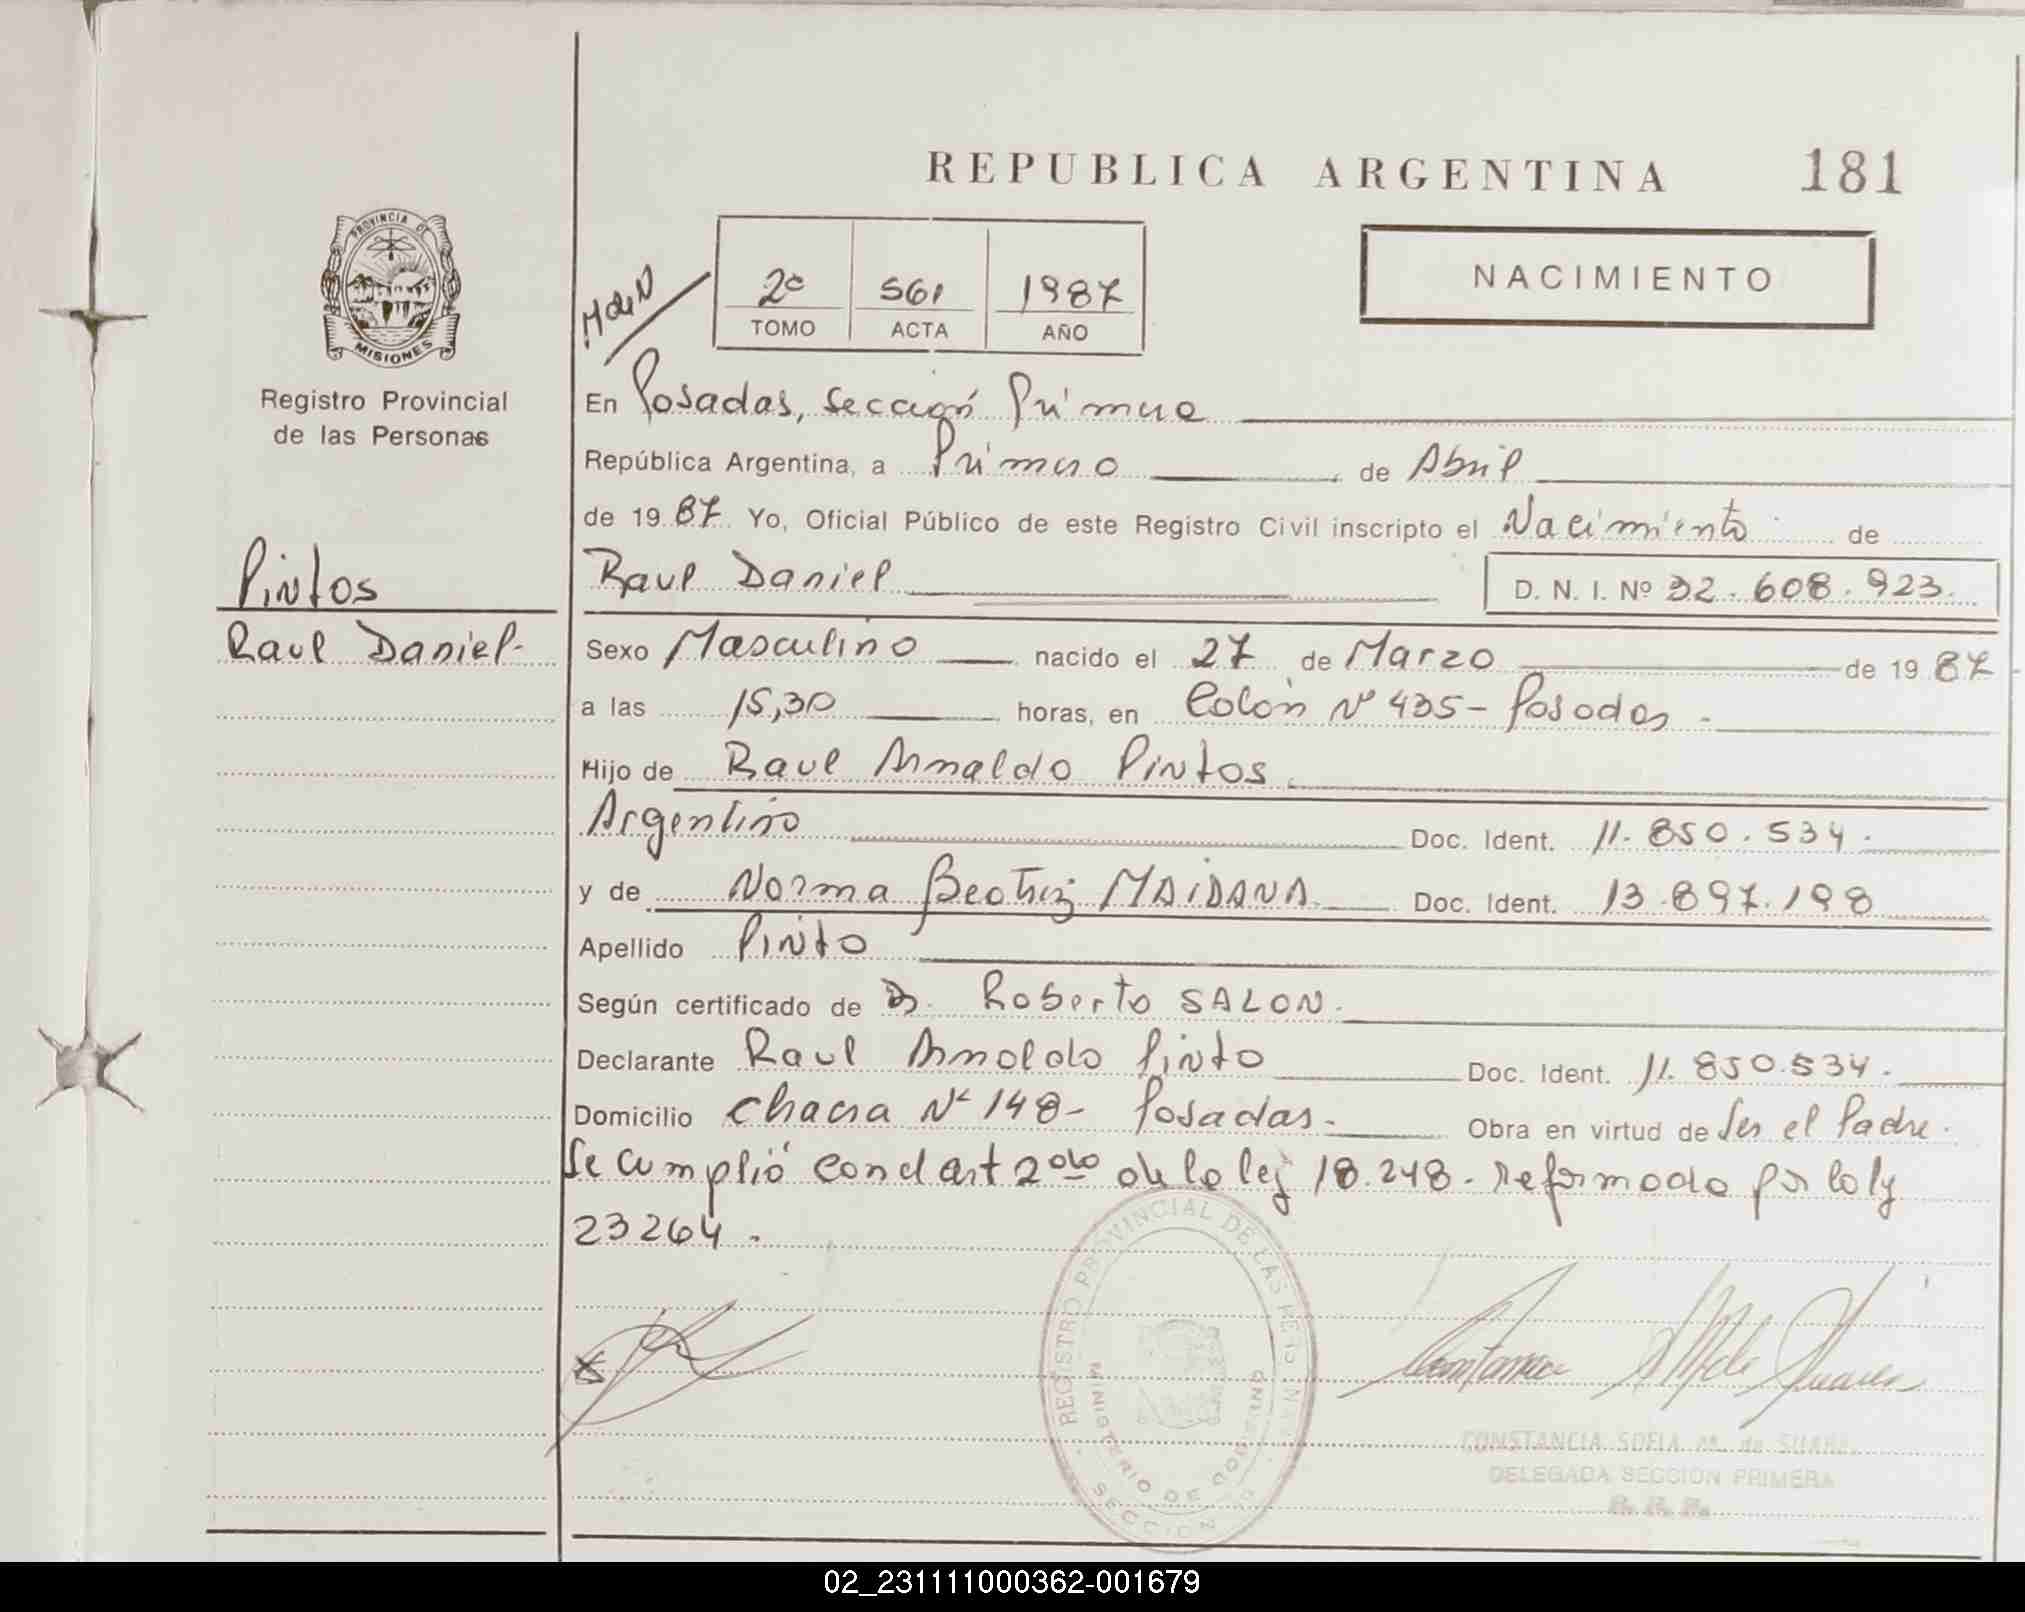 REPUBLICA ARGENTINA 181
PROVINCIA DE
MISIONES
Registro Provincial
de las Personas
MdeN
2º 561 1987
TOMO ACTA AÑO
NACIMIENTO
En Posadas, sección Primera
República Argentina, a Primero de Abril
de 1987 Yo, Oficial Público de este Registro Civil inscripto el Nacimiento de
Pintos
Raul Daniel
Raul Daniel D. N. I. Nº 32.608.923.
Sexo Masculino nacido el 27 de Marzo de 1987
a las 15,30 horas, en Colón Nº 435 - Posadas -
Hijo de Raul Arnaldo Pintos
Argentino Doc. Ident. 11.850.534.
y de Norma Beatriz MAIDANA Doc. Ident. 13.897.198
Apellido Pinto
Según certificado de D. Roberto SALON.
Declarante Raul Arnoldo Pinto Doc. Ident. 11.850.534.
Domicilio Chacra Nº 148 - Posadas. Obra en virtud de Ser el Padre.
Se cumplió con el art 2do de la ley 18.248. reformada por la ley
23264.
REGISTRO PROVINCIAL DE LAS PERSONAS
MINISTERIO DE GOBIERNO
SECCION
CONSTANCIA SOFIA M. de SUAREZ
DELEGADA SECCION PRIMERA
02_231111000362-001679